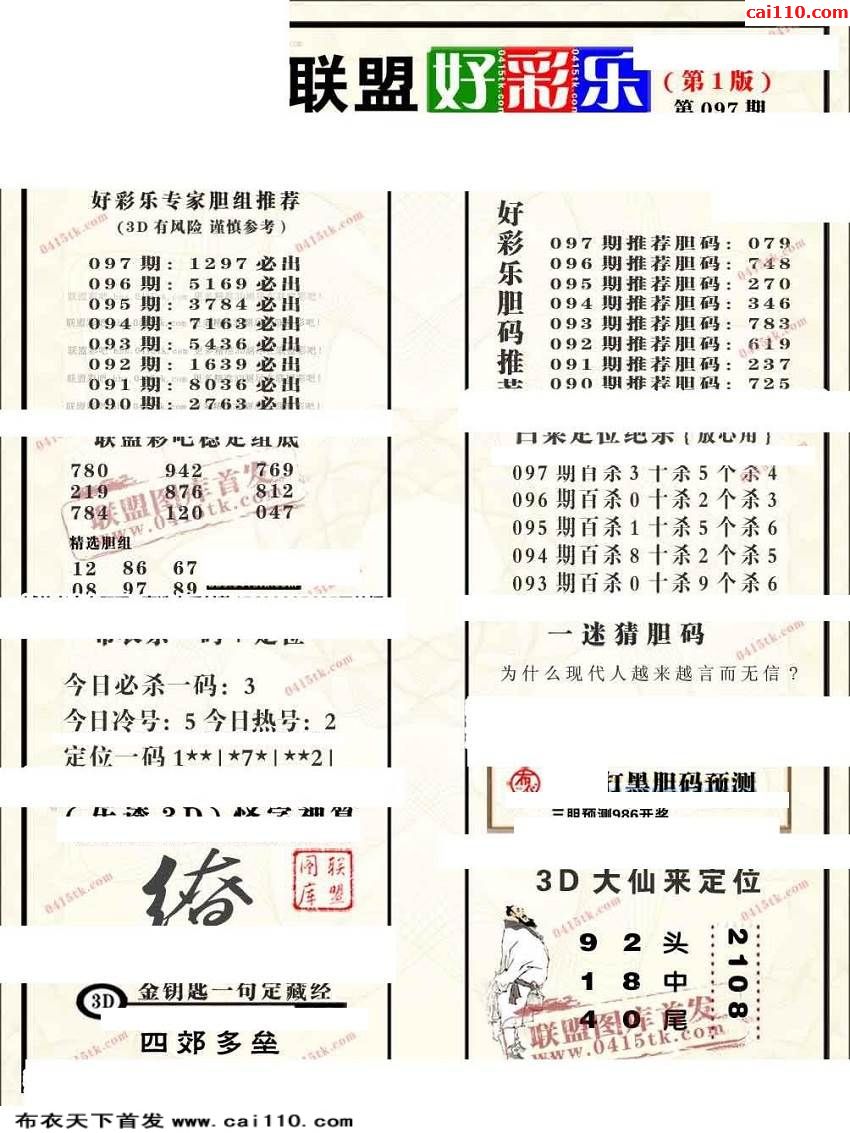 cai110.com
联盟好彩乐(第1版)
第097期
好彩乐专家胆组推荐
(3D有风险 谨慎参考)
097期: 1297必出
096期: 5169必出
095期: 3784必出
094期: 7163必出
093期: 5436必出
092期: 1639必出
091期: 8036必出
090期: 2763必出
好彩乐胆码推荐
097期推荐胆码: 079
096期推荐胆码: 748
095期推荐胆码: 270
094期推荐胆码: 346
093期推荐胆码: 783
092期推荐胆码: 619
091期推荐胆码: 237
090期推荐胆码: 725
联盟彩吧稳定组底
780 942 769
219 876 812
784 120 047
精选胆组
12 86 67
08 97 89
定位绝杀{放心用}
097期百杀3十杀5个杀4
096期百杀0十杀2个杀3
095期百杀1十杀5个杀6
094期百杀8十杀2个杀5
093期百杀0十杀9个杀6
今日必杀一码: 3
今日冷号: 5 今日热号: 2
定位一码1**|*7*|**2|
一迷猜胆码
为什么现代人越来越言而无信?
胆码预测
三胆预测986开奖
联盟图库
3D
金钥匙一句定藏经
四郊多垒
3D大仙来定位
9 2 头
1 8 中
4 0 尾
2108
联盟图库首发
www.0415tk.com
0415tk.com
布衣天下首发 www.cai110.com